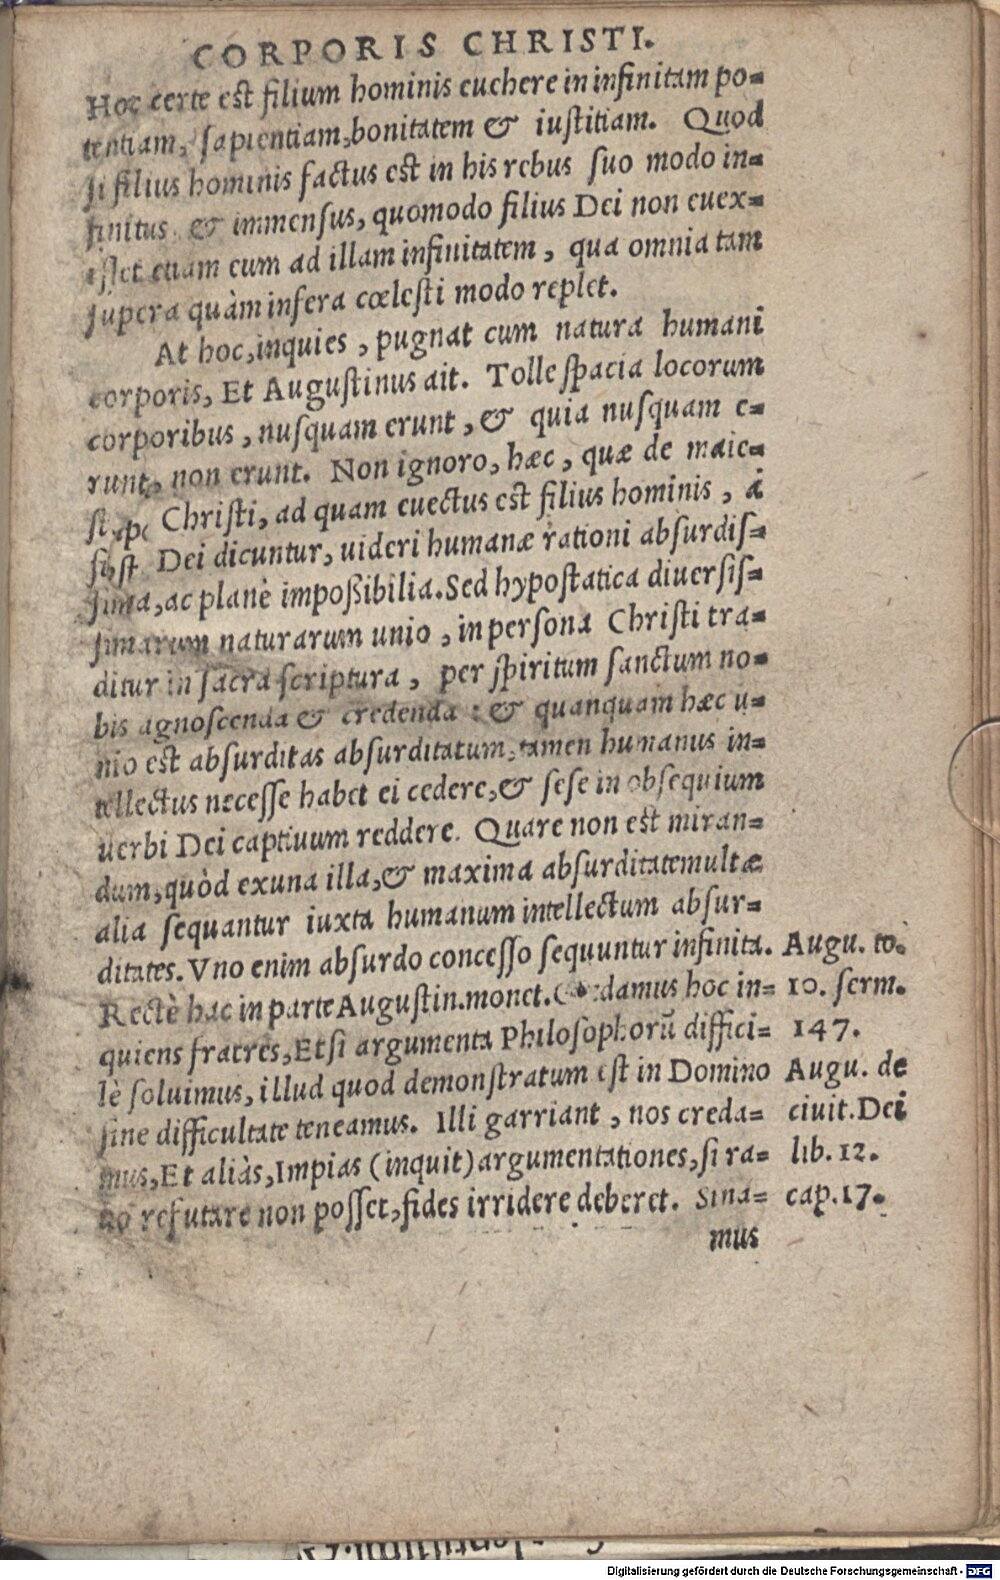 CORPORIS CHRISTI.
Hoc certe est filium hominis euehere in infinitam po-
tentiam, sapientiam, bonitatem & iustitiam. Quod
si filius hominis factus est in his rebus suo modo in-
finitus & immensus, quomodo filius Dei non euex-
isset etiam eum ad illam infinitatem, qua omnia tam
supera quàm infera cœlesti modo replet.
At hoc, inquies, pugnat cum natura humani
corporis, Et Augustinus ait. Tolle spacia locorum
corporibus, nusquam erunt, & quia nusquam e-
runt, non erunt. Non ignoro, hæc, quæ de maie-
Christi, ad quam euectus est filius hominis, à
Dei dicuntur, uideri humanæ rationi absurdis-
sima, ac planè impoßibilia. Sed hypostatica diuersis-
simarum naturarum unio, in persona Christi tra-
ditur in sacra scriptura, per spiritum sanctum no-
bis agnoscenda & credenda: & quanquam hæc u-
nio est absurditas absurditatum, tamen humanus in-
tellectus necesse habet ei cedere, & sese in obsequium
uerbi Dei captiuum reddere. Quare non est miran-
dum, quòd ex una illa, & maxima absurditate multæ
alia sequantur iuxta humanum intellectum absur-
ditates. Vno enim absurdo concesso sequuntur infinita.
Rectè hac in parte Augustin. monet. damus hoc in-
quiens fratres, Etsi argumenta Philosophorũ diffici-
lè soluimus, illud quod demonstratum est in Domino
sine difficultate teneamus. Illi garriant, nos creda-
mus, Et aliàs, Impias (inquit) argumentationes, si ra-
tio refutare non posset, fides irridere deberet. Sina-
mus
Augu. to.
10. serm.
147.
Augu. de
ciuit. Dei
lib. 12.
cap. 17.
Digitalisierung gefördert durch die Deutsche Forschungsgemeinschaft - DFG